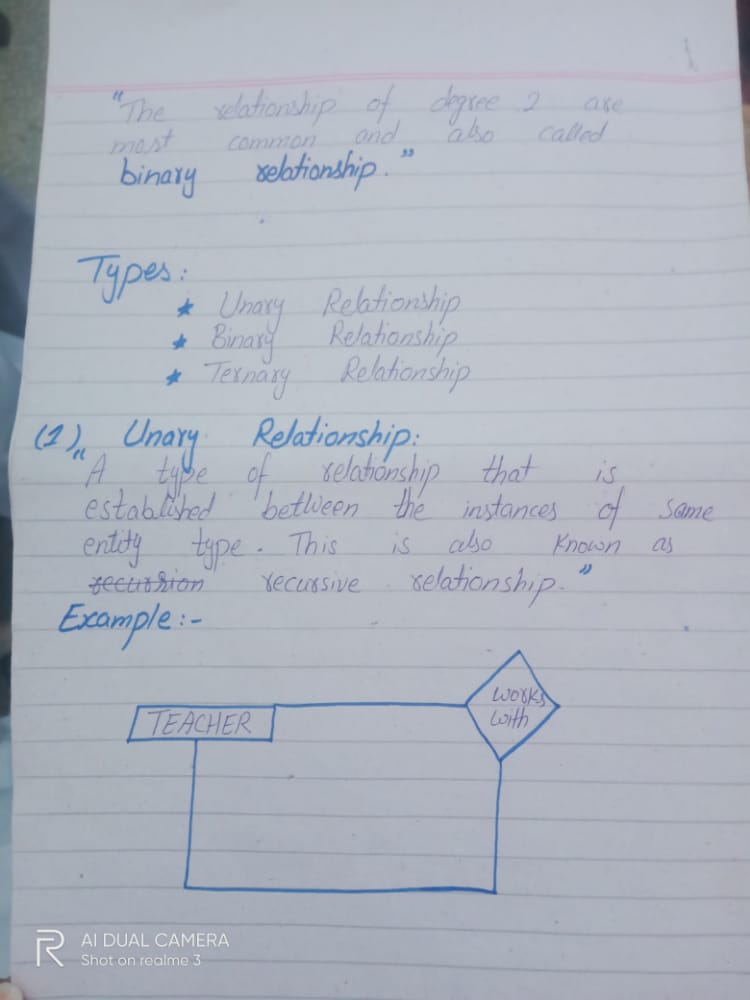 "The relationship of degree 2 are
most common and also called
binary relationship."
Types:
★ Unary Relationship
★ Binary Relationship
★ Ternary Relationship
(1) Unary Relationship:
"A type of relationship that is
established between the instances of same
entity type. This is also known as
recursion recursive relationship."
Example:-
works
with
TEACHER
R
AI DUAL CAMERA
Shot on realme 3